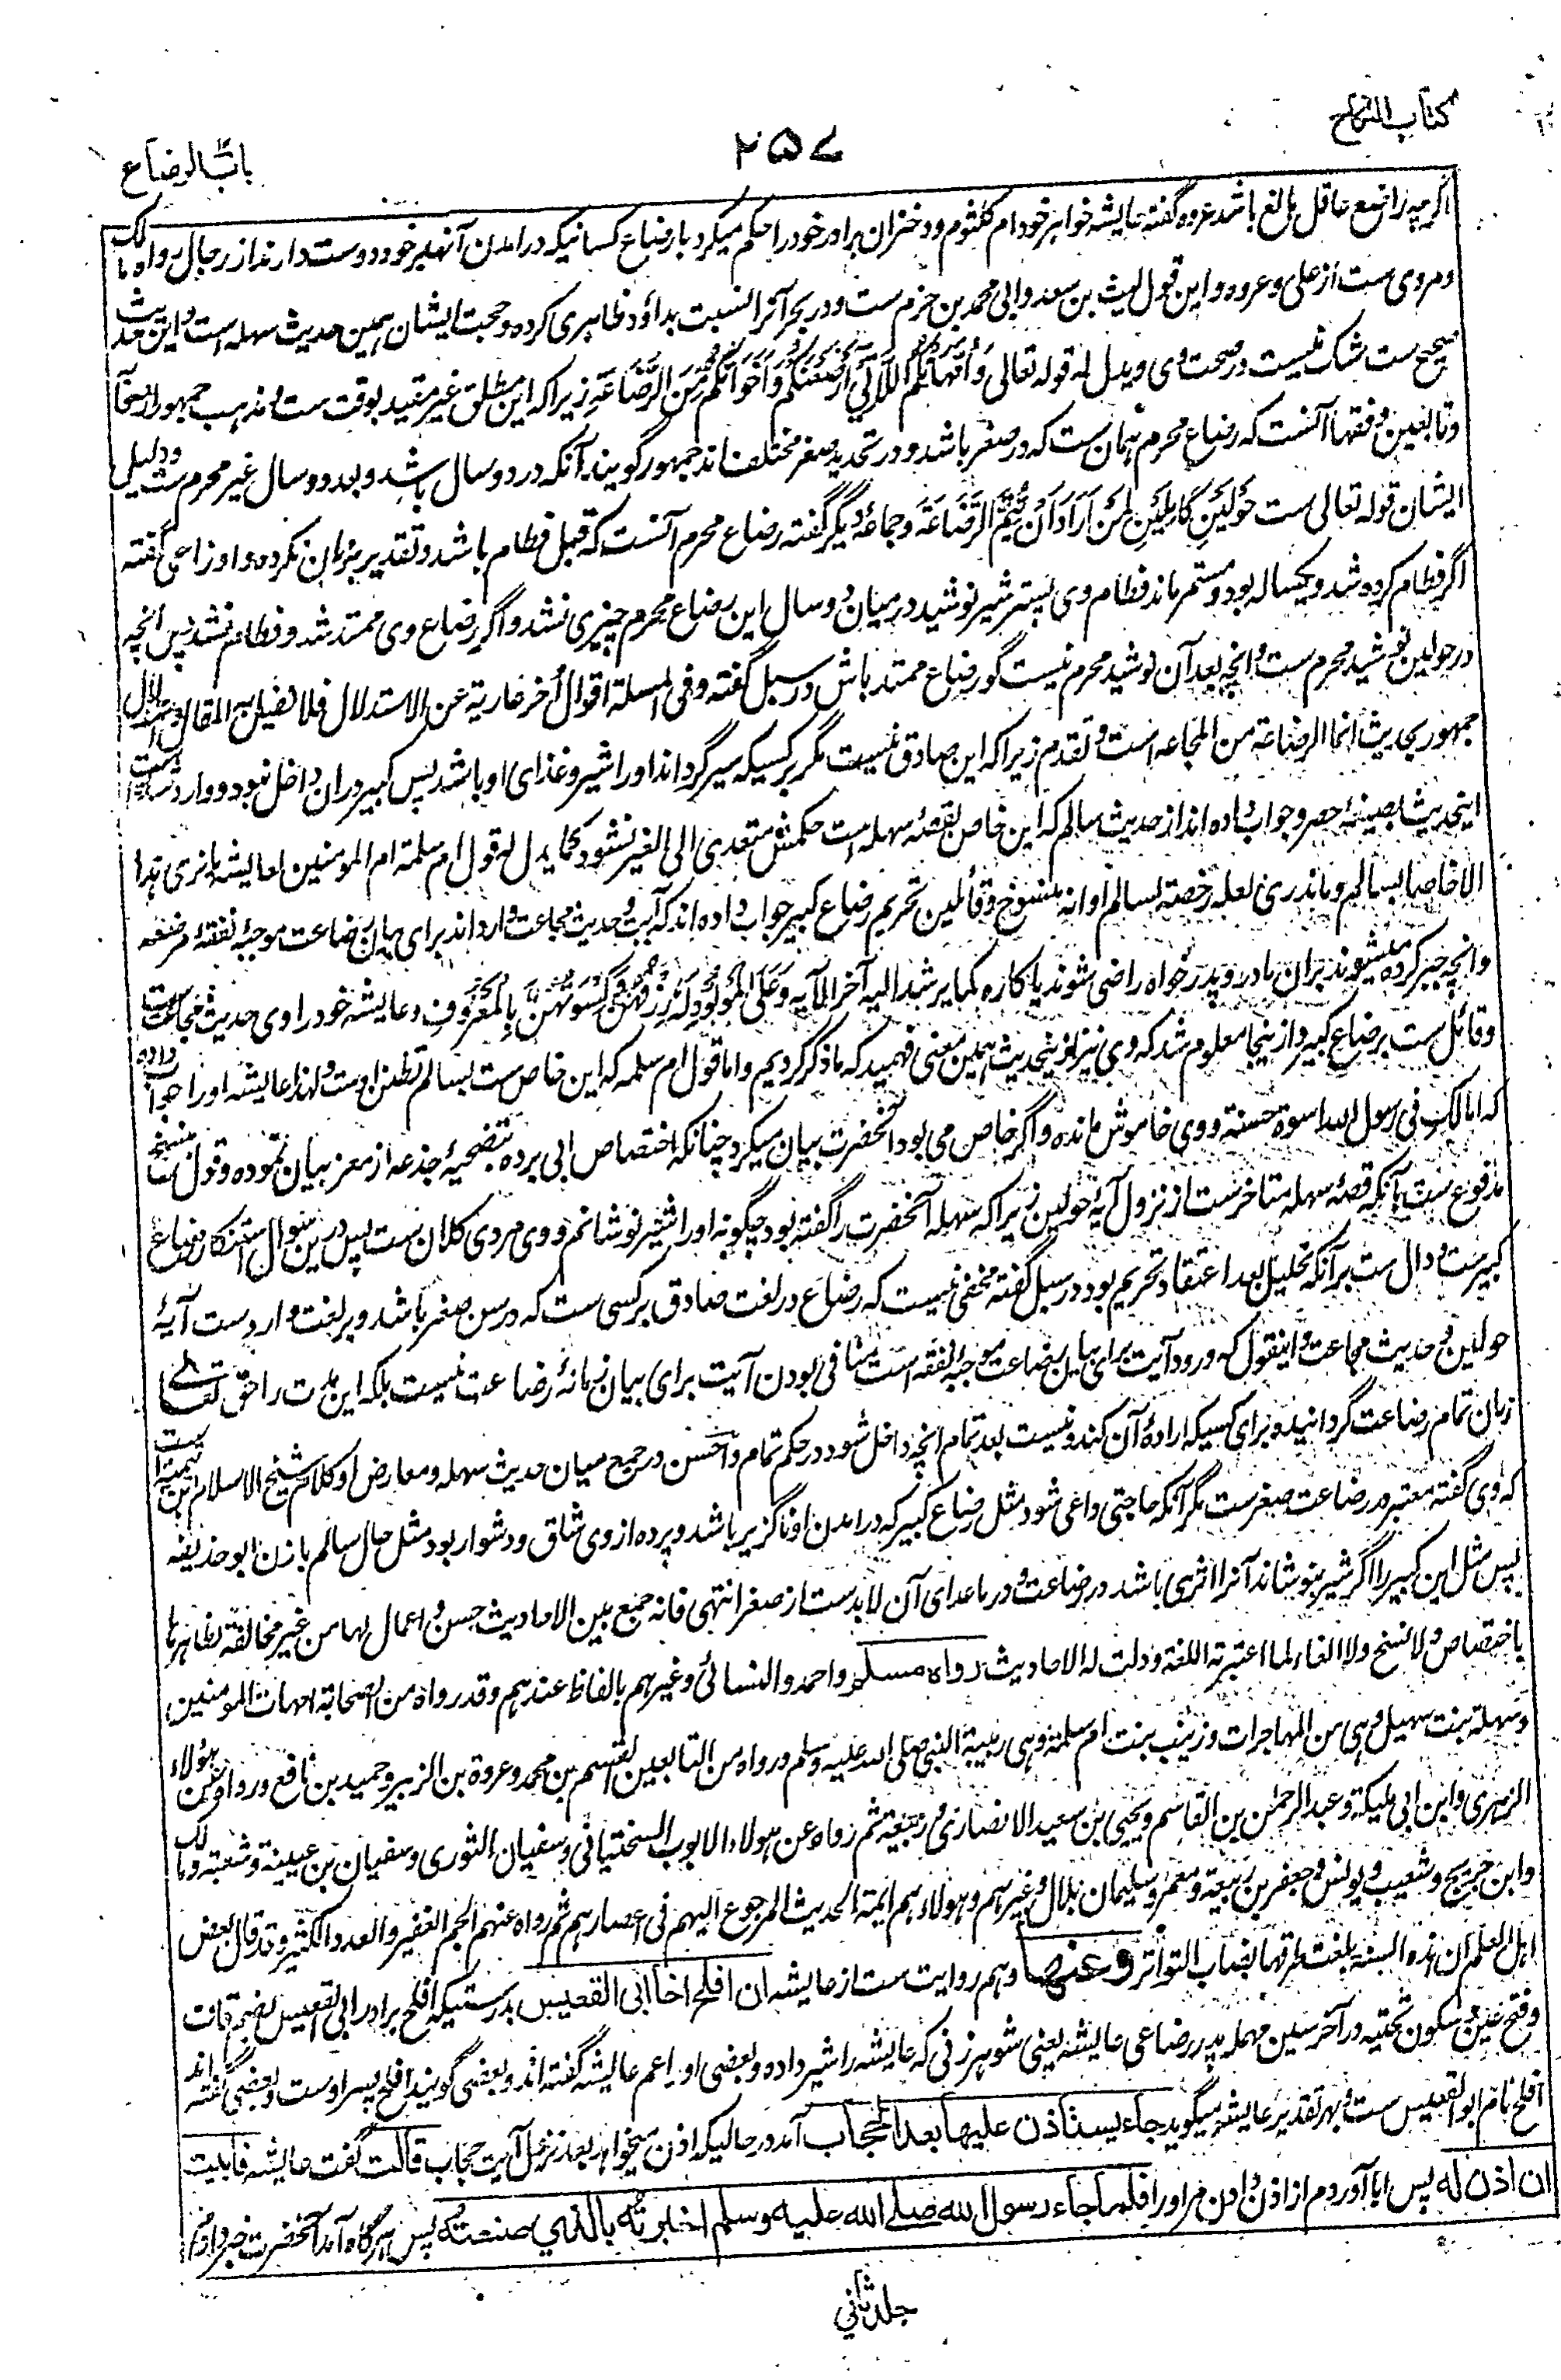 کتاب النکاح
۲۵۷
باب الرضاع
اگرچه راضع عاقل بالغ باشد عروه گفته عایشه خواهر خود ام کلثوم و دختران برادر خود را حکم میکرد بارضاع کسانیکه درامدن آنها بر خود دوست دارند از رجال رواه مالک
و مروی ست از علی و عروه و این قول لیث بن سعد و ابی محمد بن حزم ست و در بحر آنرا نسبت بداؤد ظاهری کرده و حجت ایشان همین حدیث سهله است و این حدیث
صحیح ست شک نیست در صحت وی و یدل له قوله تعالی وَأُمَّهَاتُكُمُ اللَّاتِي أَرْضَعْنَكُمْ وَأَخَوَاتُكُمْ مِنَ الرَّضَاعَةِ زیرا که این مطلق غیر مقید بوقت ست و مذهب جمهور از صحابة
و تابعین و فقها آنست که رضاع محرم همان ست که در صغر باشد و در تحدید صغر مختلف اند جمهور گویند آنکه در دو سال باشد و بعد دو سال غیر محرم ست و دلیل
ایشان قوله تعالی ست حَوْلَيْنِ كَامِلَيْنِ لِمَنْ أَرَادَ أَنْ يُتِمَّ الرَّضَاعَةَ و جماعۀ دیگر گفته رضاع محرم آنست که قبل فطام باشد و تقدیر بزمان نکرده و اوزاعی گفته
اگر فطام کرده شد و یکساله بود و مستمر ماند فطام وی پستر شیر نوشید در میان دو سال این رضاع محرم چیزی نشد و اگر رضاع وی ممتد شد و فطام نشد پس انچه
در حولین نوشید محرم ست و انچه بعد آن نوشید محرم نیست گو رضاع ممتد باش در سبل گفته و فی المسئلة اقوال أخر عاریة عن الاستدلال فلا نطیل بها المقال و استدلال
جمهور بحدیث انما الرضاعة من المجاعه است و تقدم زیرا که این صادق نیست مگر بر کسیکه سیر گرداند او را شیر و غذای او باشد پس کبیر دران داخل نبود و وارد شده است
اینحدیث بصیغۀ حصر و جواب داده اند از حدیث سالم که این خاص بقصۀ سهله است حکمش متعدی الی الغیر نشود کما یدل له قول ام سلمة ام المومنین لعایشة ما نری هذا
الا خاصا بسالم و ما ندری لعله رخصة لسالم او انه منسوخ و قائلین تحریم رضاع کبیر جواب داده اند که آیت و حدیث مجاعت وارد اند برای بیان رضاعت موجبۀ نفقۀ مرضعه
و انچه جبر کرده میشوند بران مادر و پدر خواه راضی شوند یا کاره کما یرشد الیه آخر الآیه وَعَلَى الْمَوْلُودِ لَهُ رِزْقُهُنَّ وَكِسْوَتُهُنَّ بِالْمَعْرُوفِ و عایشه خود راوی حدیث مجاعت ست
و قائل ست برضاع کبیر و از ینجا معلوم شد که وی نیز از ینحدیث همین معنی فهمید که ما ذکر کردیم و اما قول ام سلمه که این خاص ست بسالم تظنن اوست و لهذا عایشه او را جواب داده
که اما لک فی رسول الله اسوة حسنة و وی خاموش مانده و اگر خاص می بود آنحضرت بیان میکرد چنانکه اختصاص ابی برده بتضحیۀ جذعه از معز بیان نموده و قول نسخ
مدفوع ست بآنکه قصۀ سهله متاخر ست از نزول آیۀ حولین زیرا که سهله آنحضرت را گفته بود چگونه او را شیر نوشانم و وی مردی کلان ست پس درین سوال استنکار رضاع
کبیر ست و دال ست برآنکه تحلیل بعد اعتقاد تحریم بود در سبل گفته مخفی نیست که رضاع در لغت صادق بر کسی ست که در سن صغر باشد و بر لغت وارد ست آیۀ
حولین و حدیث مجاعت و اینقول که ورود آیت برای بیان رضاعت موجبۀ نفقه است منافی بودن آیت برای بیان زمانۀ رضاعت نیست بلکه این مدت را حق تعالے
زمان تمام رضاعت گردانیده برای کسیکه ارادۀ آن کند و نیست بعد تمام انچه داخل شود در حکم تمام و احسن در جمع میان حدیث سهله و معارض او کلام شیخ الاسلام ابن تیمیه است
که وی گفته معتبر در رضاعت صغر ست مگر آنکه حاجتی داعی شود مثل رضاع کبیر که درامدن او ناگزیر باشد و پرده از وی شاق و دشوار بود مثل حال سالم با زن ابو حذیفه
پس مثل این کبیر را اگر شیر بنوشاند آنرا اثری باشد در رضاعت و در ماعدای آن لابد ست از صغر انتهی فانه جمع بین الاحادیث حسن و اعمال لها من غیر مخالفة لظاهرها
باختصاص ولا نسخ ولا الغاء لما اعتبرته اللغة و دلت له الاحادیث رواه مسلم و احمد و النسائی و غیرهم بالفاظ عندهم و قد رواه من الصحابة امهات المومنین
و سهلة بنت سهیل و هی من المهاجرات و زینب بنت ام سلمة و هی ربیبة النبی صلی الله علیه و سلم و رواه من التابعین القسم بن محمد و عروة بن الزبیر و حمید بن نافع و رواه عن هؤلاء
الزهری و ابن ابی ملیکة و عبد الرحمٰن بن القاسم و یحیی بن سعید الانصاری و ربیعة ثم رواه عن هولاء الایوب السختیانی و سفیان الثوری و سفیان بن عیینة و شعبة و مالک
و ابن جریج و شعیب و یونس و جعفر بن ربیعة و معمر و سلیمان بن بلال و غیرهم و هولاء هم ائمة الحدیث المرجوع الیهم فی اعصارهم ثم رواه عنهم الجم الغفیر و العدد الکثیر و قد قال بعض
اهل العلم ان هذه السنة بلغت طرقها نصاب التواتر وعنها و هم روایت ست از عایشه ان افلح اخا ابی القعیس بدرستیکه افلح برادر ابی القعیس بضم قاف
و فتح عین و سکون تحتیه در آخر سین مهمله پدر رضاعی عایشه یعنی شوهر زنی که عایشه را شیر داده و بعضی او را عم عایشه گفته اند و بعضی گویند افلح پسر اوست و بعضی گفته اند
افلح نام ابو القعیس ست و بهر تقدیر عایشه میگوید جاء یستاذن علیها بعد الحجاب آمد در حالیکه اذن میخواهد بعد نزول آیت حجاب قالت گفت عایشه فابیت
ان اذن له پس ابا آوردم از اذن دادن مر او را فلما جاء رسول الله صلے الله علیه وسلم اخبرته بالذي صنعته پس هرگاه آمد آنحضرت خبر دادم
جلد ثانی